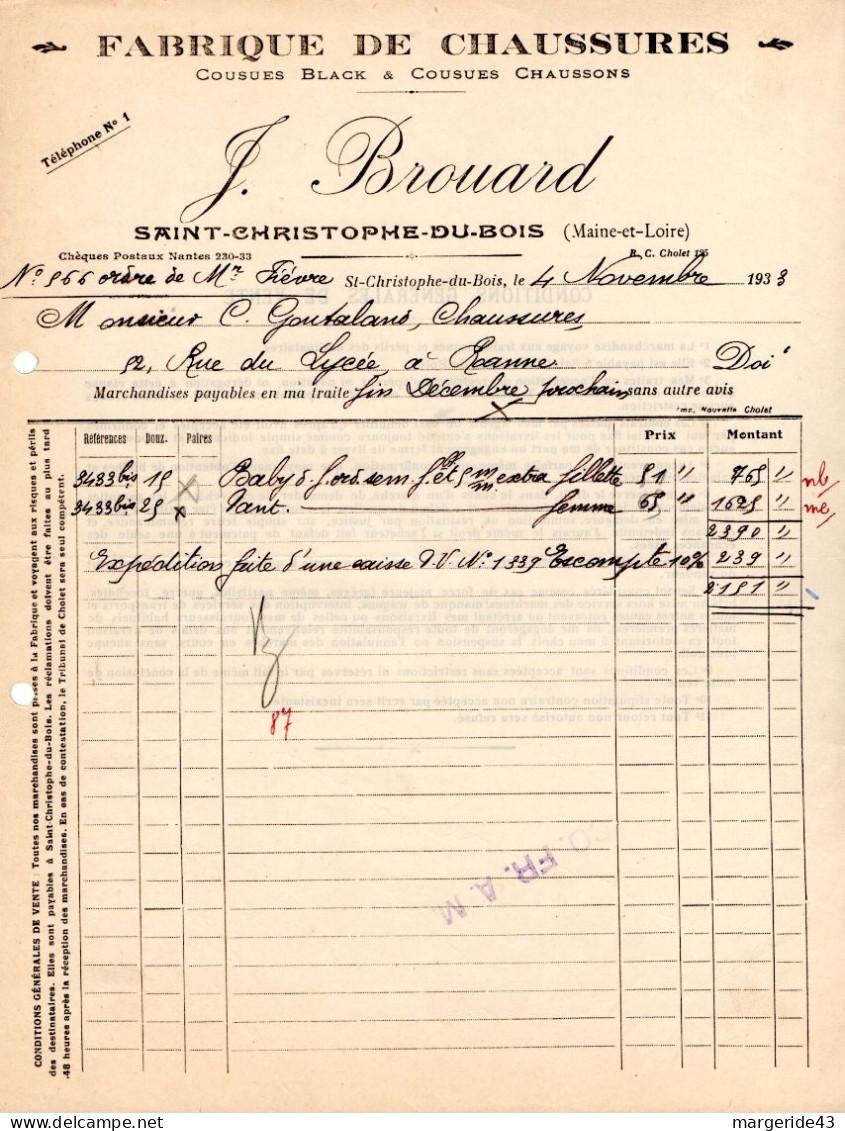 FABRIQUE DE CHAUSSURES
COUSUES BLACK & COUSUES CHAUSSONS
Téléphone N° 1
J. Brouard
SAINT-CHRISTOPHE-DU-BOIS (Maine-et-Loire)
Chèques Postaux Nantes 230-33
R. C. Cholet 195
N° 966 ordre de Mr Fièvre St-Christophe-du-Bois, le 4 Novembre 1933
Monsieur C. Goutaland, Chaussures
92, Rue du Lycée, à Roanne Doit
Marchandises payables en ma traite fin Décembre prochain sans autre avis
Imp. Nouvelle Cholet
Références Douz. Paires Prix Montant
3433 bis 15 x Baby extra fillette 51 " 765 " nb
3433 bis 25 x Dant. femme 65 " 1625 " me
2390 "
Expédition faite d'une caisse P.V. N° 1339 Escompte 10% 239 "
2151 "
87
O. FR. A. M.
CONDITIONS GÉNÉRALES DE VENTE : Toutes nos marchandises sont prises à la Fabrique et voyagent aux risques et périls
des destinataires. Elles sont payables à Saint-Christophe-du-Bois. Les réclamations doivent être faites au plus tard
48 heures après la réception des marchandises. En cas de contestation, le Tribunal de Cholet sera seul compétent.
margeride43